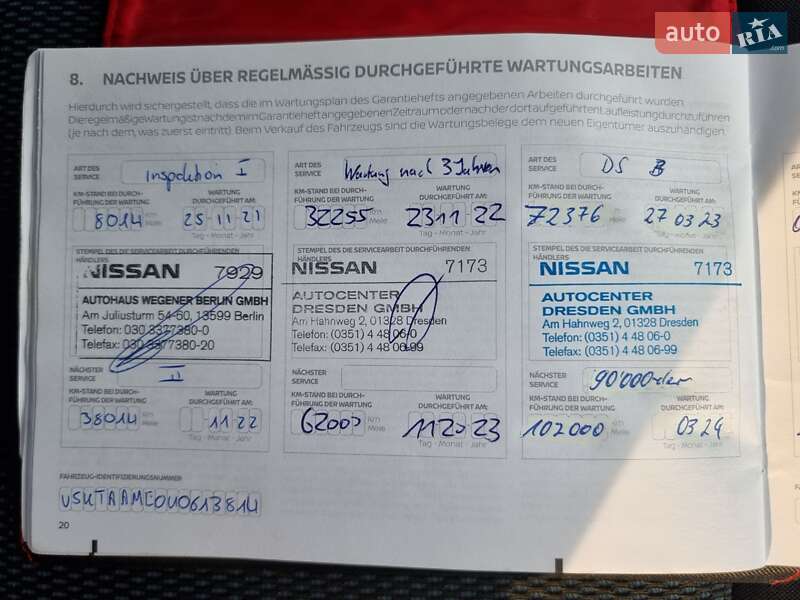 auto RIA
.com
8. NACHWEIS ÜBER REGELMÄSSIG DURCHGEFÜHRTE WARTUNGSARBEITEN
Hierdurch wird sichergestellt, dass die im Wartungsplan des Garantiehefts angegebenen Arbeiten durchgeführt wurden.
Die regelmäßige Wartung ist nach dem im Garantieheft angegebenen Zeitraum oder nach der dort aufgeführten Laufleistung durchzuführen
(je nach dem, was zuerst eintritt). Beim Verkauf des Fahrzeugs sind die Wartungsbelege dem neuen Eigentümer auszuhändigen.
ART DES SERVICE Inspektion I
KM-STAND BEI DURCH- WARTUNG
FÜHRUNG DER WARTUNG DURCHGEFÜHRT AM:
8014 km Meile 25 11 21
Tag - Monat - Jahr
STEMPEL DES DIE SERVICEARBEIT DURCHFÜHRENDEN
HÄNDLERS
NISSAN 7929
AUTOHAUS WEGENER BERLIN GMBH
Am Juliusturm 54-60, 13599 Berlin
Telefon: 030 3377380-0
Telefax: 030 3377380-20
NÄCHSTER SERVICE II
KM-STAND BEI DURCH- WARTUNG
FÜHRUNG DER WARTUNG DURCHGEFÜHRT AM:
38014 km Meile 11 22
Tag - Monat - Jahr
ART DES SERVICE Wartung nach 3 Jahren
KM-STAND BEI DURCH- WARTUNG
FÜHRUNG DER WARTUNG DURCHGEFÜHRT AM:
32255 km Meile 23 11 22
Tag - Monat - Jahr
STEMPEL DES DIE SERVICEARBEIT DURCHFÜHRENDEN
HÄNDLERS
NISSAN 7173
AUTOCENTER
DRESDEN GMBH
Am Hahnweg 2, 01328 Dresden
Telefon: (0351) 4 48 06-0
Telefax: (0351) 4 48 06-99
NÄCHSTER SERVICE
KM-STAND BEI DURCH- WARTUNG
FÜHRUNG DER WARTUNG DURCHGEFÜHRT AM:
62000 km Meile 11 2023
Tag - Monat - Jahr
ART DES SERVICE DS B
KM-STAND BEI DURCH- WARTUNG
FÜHRUNG DER WARTUNG DURCHGEFÜHRT AM:
72376 km Meile 27 03 23
Tag - Monat - Jahr
STEMPEL DES DIE SERVICEARBEIT DURCHFÜHRENDEN
HÄNDLERS
NISSAN 7173
AUTOCENTER
DRESDEN GMBH
Am Hahnweg 2, 01328 Dresden
Telefon: (0351) 4 48 06-0
Telefax: (0351) 4 48 06-99
NÄCHSTER SERVICE 90'000-der
KM-STAND BEI DURCH- WARTUNG
FÜHRUNG DER WARTUNG DURCHGEFÜHRT AM:
102000 km Meile 03 24
Tag - Monat - Jahr
FAHRZEUG-IDENTIFIZIERUNGSNUMMER
VSKTAAME0U0613814
20